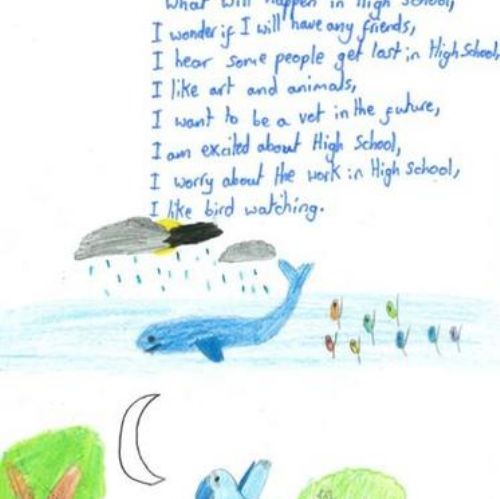 What will happen in High School,
I wonder if I will have any friends,
I hear some people get lost in High School,
I like art and animals,
I want to be a vet in the future,
I am excited about High School,
I worry about the work in High School,
I like bird watching.